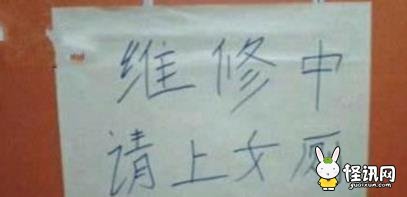 维修中
请上女厕
怪讯网
guaixun.com